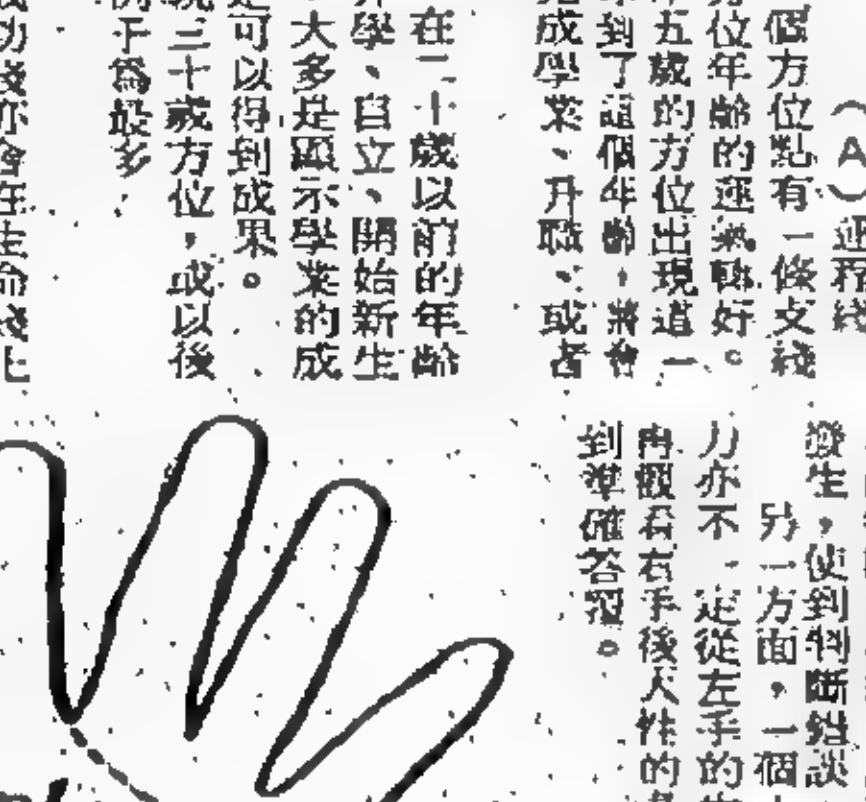 (A)運程綫
個方位點有一條支綫
方位年齡的運氣轉好。
五歲的方位出現這一
到了這個年齡,將會
成學業、升職、或者
在二十歲以前的年齡
升學、自立、開始新生
大多是顯示學業的成
是可以得到成果。
三十歲方位,或以後
于為最多
成功綫亦會在生命綫上
發生,使到判斷錯誤
另一方面,一個
力亦不一定從左手的
再觀看右手後天性的
到準確答覆。